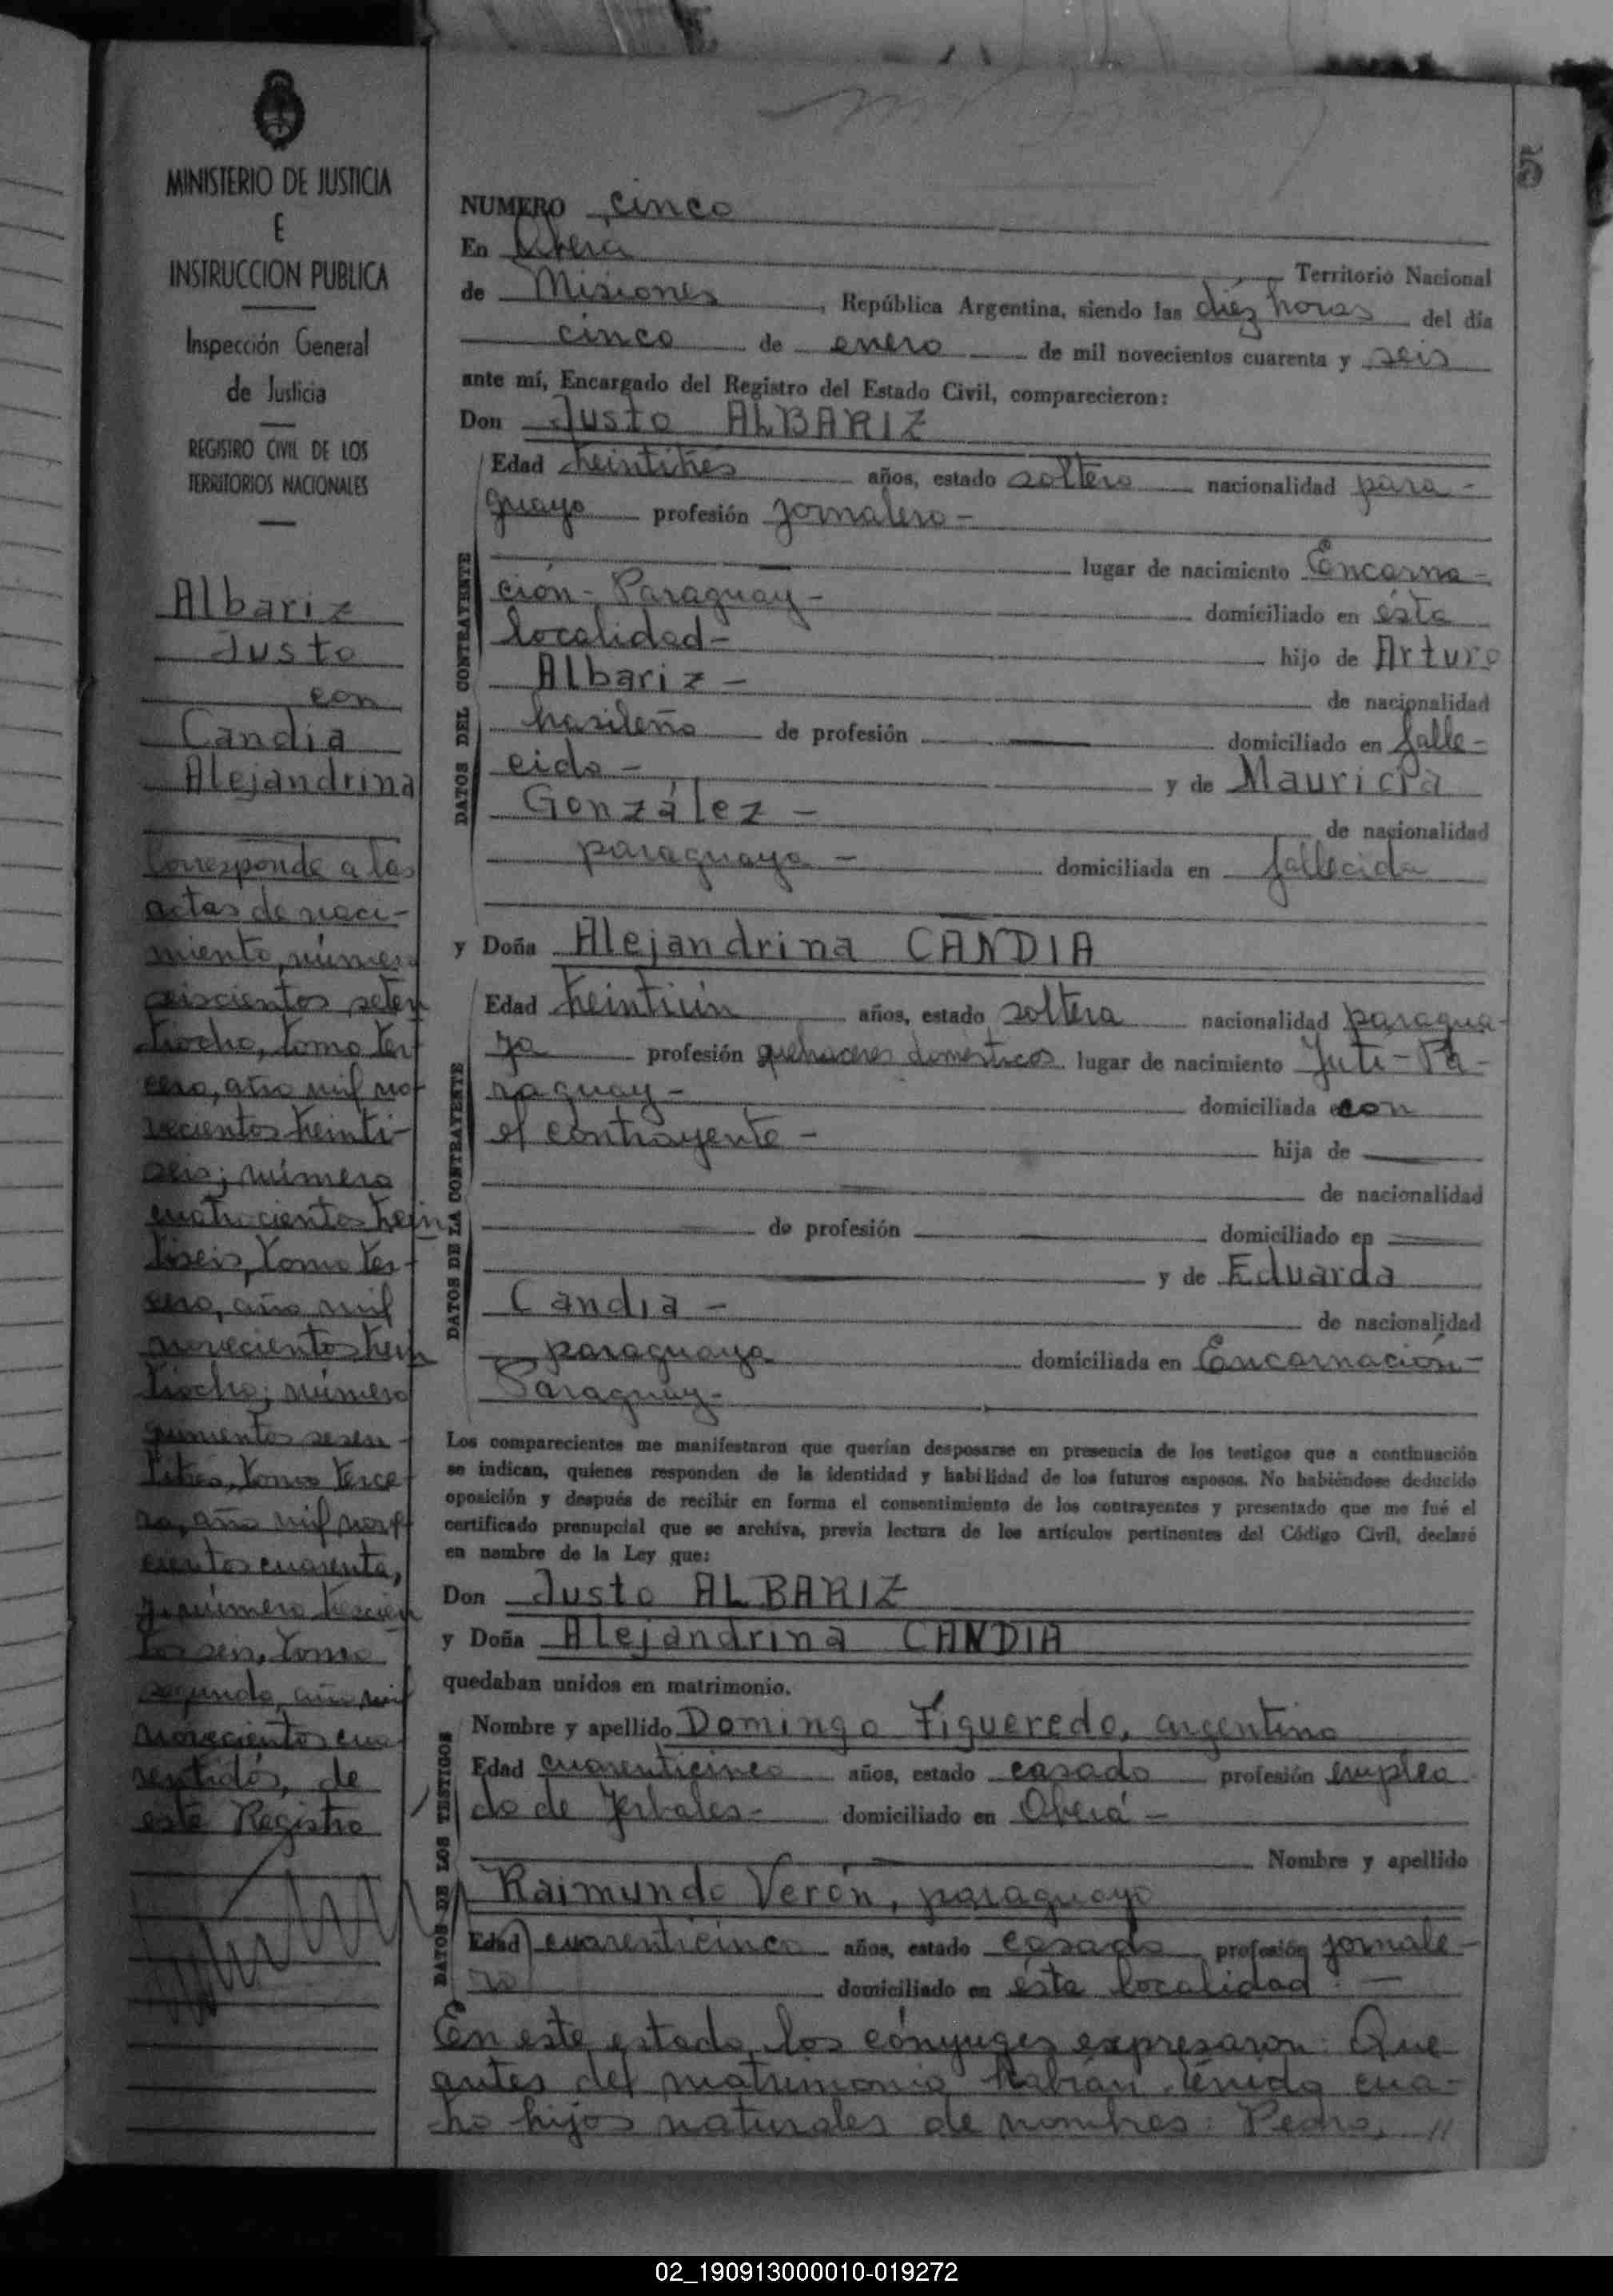 MINISTERIO DE JUSTICIA
E
INSTRUCCION PUBLICA
Inspección General
de Justicia
REGISTRO CIVIL DE LOS
TERRITORIOS NACIONALES
Albariz
Justo
con
Candia
Alejandrina
Corresponde a las
actas de naci-
miento, número
seiscientos seten
tiocho, tomo ter-
cero, año mil no-
vecientos treinti-
seis; número
cuatrocientos trein
tiseis, tomo ter-
cero, año mil
novecientos trein
tiocho; número
quinientos sesen-
titres, tomo terce-
ro, año mil nove
cientos cuarenta,
y número trescien
tos seis, tomo
segundo, año mil
novecientos cua
rentidós, de
este Registro
5
NUMERO cinco
En Oberá Territorio Nacional
de Misiones, República Argentina, siendo las diez horas del día
cinco de enero de mil novecientos cuarenta y seis
ante mí, Encargado del Registro del Estado Civil, comparecieron:
Don Justo ALBARIZ
DATOS DEL CONTRAYENTE
Edad treintitrés años, estado soltero nacionalidad para-
guayo profesión jornalero-
lugar de nacimiento Encarna-
ción- Paraguay- domiciliado en ésta
localidad- hijo de Arturo
Albariz- de nacionalidad
brasileño de profesión domiciliado en falle-
cido- y de Mauricia
González- de nacionalidad
paraguaya- domiciliada en fallecida
y Doña Alejandrina CANDIA
DATOS DE LA CONTRAYENTE
Edad treintiún años, estado soltera nacionalidad paragua-
ya profesión quehaceres domesticos lugar de nacimiento Yuti-Pa-
raguay- domiciliada con
el contrayente- hija de
de nacionalidad
de profesión domiciliado en
y de Eduarda
Candia- de nacionalidad
paraguaya domiciliada en Encarnación-
Paraguay-
Los comparecientes me manifestaron que querían desposarse en presencia de los testigos que a continuación
se indican, quienes responden de la identidad y habilidad de los futuros esposos. No habiéndose deducido
oposición y después de recibir en forma el consentimiento de los contrayentes y presentado que me fué el
certificado prenupcial que se archiva, previa lectura de los artículos pertinentes del Código Civil, declaré
en nombre de la Ley que:
Don Justo ALBARIZ
y Doña Alejandrina CANDIA
quedaban unidos en matrimonio.
DATOS DE LOS TESTIGOS
Nombre y apellido Domingo Figueredo, argentino
Edad cuarenticinco años, estado casado profesión emplea
do de Yerbales- domiciliado en Oberá-
Nombre y apellido
Raimundo Verón, paraguayo
Edad cuarenticinco años, estado casado profesión jornale-
ro domiciliado en ésta localidad.-
En este estado los cónyuges expresaron: Que
antes del matrimonio habían tenido cua-
tro hijos naturales de nombres: Pedro, //
02_190913000010-019272